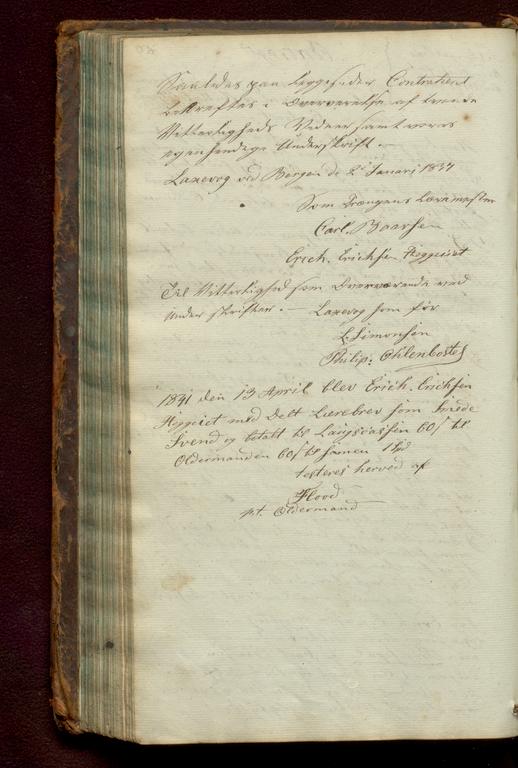 Saaledes paa beggesider Contraheert
bekræftes i Overværelse af tvende
Vitterligheds Vidner samt vores
egenhændige Underskrift. —
Laxevog ved Bergen de 2 Januari 1837
Som Drængens Læremester
Carl. Baarsen
Erich. Erichsen
Til Vitterlighed som Overværende ved
Under skriften. — Laxevog som før
L: Simonsen
Philip: Ohlenbostel
1841 den 13 April blev Erich. Erichsen
med Delt Lærebrev som Smede
Svend og betalt til Laugscassen 60 s til
Oldermanden 60 s til
testeres herved af
Flood
p.t. Oldermand